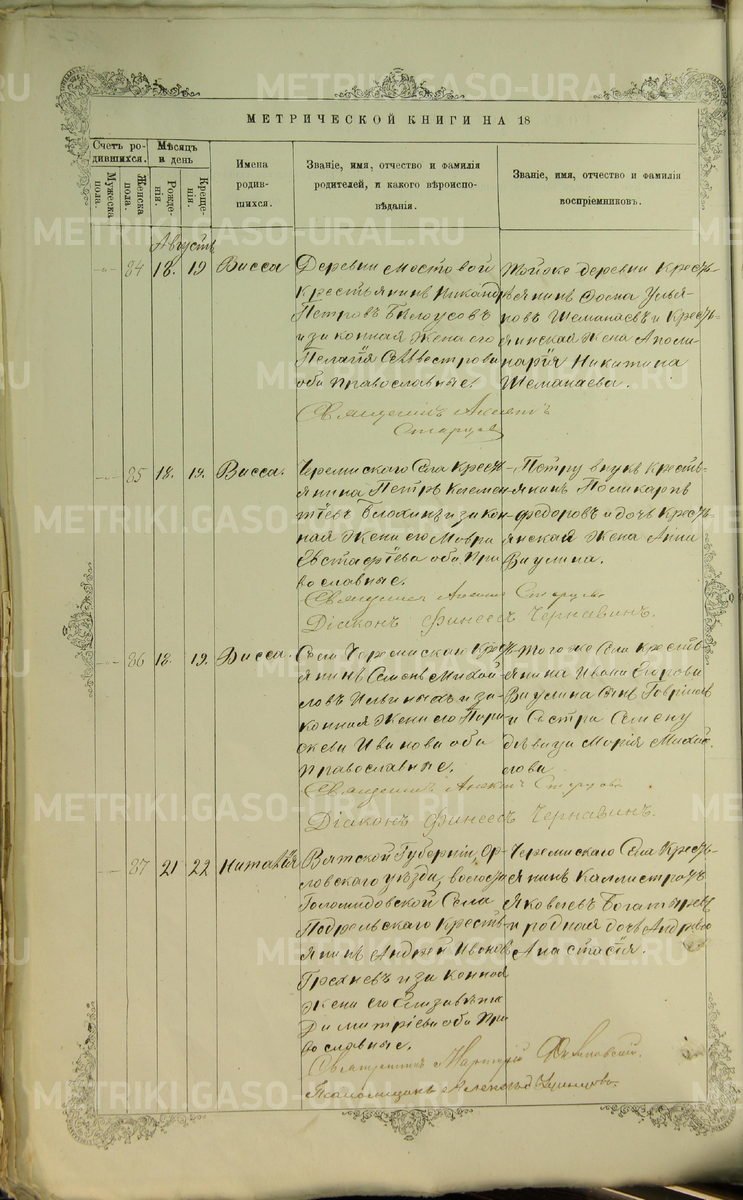 METRIKI.GASO-URAL.RU
МЕТРИЧЕСКОЙ КНИГИ НА 18
Счетъ ро-
дившихся.
Мужеска
пола.
Женска
пола.
Мѣсяцъ
и день
Рожде-
нія.
Креще-
нія.
Имена
родив-
шихся.
Званіе, имя, отчество и фамилія
родителей, и какого вѣроиспо-
вѣданія.
Званіе, имя, отчество и фамилія
воспріемниковъ.
Августъ
84 18. 19 Васса
Деревни Мостовой
крестьянинъ Никандръ
Петровъ Бѣлоусовъ
и законная жена его
Пелагія
оба православные
Священникъ Алексій
Старцевъ
Тойже деревни кресть-
янинъ Фома Улья-
новъ Шеманаевъ и кресть-
янская жена Аполи-
нарія Никитина
Шеманаева.
85 18. 19. Васса.
Черемисскаго Села кресть-
янинъ Петръ Климен-
тіевъ Блохинъ и закон-
ная жена его Мавра
Евстафіева оба пра
вославные.
Священникъ Алексій Старцевъ
Діаконъ Финеесъ Чернавинъ.
Петру внукъ кресть-
янинъ Поликарпъ
Федоровъ и дочь кресть-
янская жена Анна
Ваулина.
86 18. 19. Васса.
Села Черемисскаго крес
янинъ Семенъ Михай
ловъ Ильиныхъ и за-
конная жена его Пара
скева Иванова оба
православные.
Священникъ Алексій Старцевъ
Діаконъ Финеесъ Чернавинъ.
Тогоже Села кресть
янина Ивана Егорова
Ваулина сынъ Гавріилъ
и сестра Семену
дѣвица Марія Михай
лова
87 21 22 Наталія
Вятской Губерніи, Ор-
ловскаго уѣзда, волости
Села
Подрельскаго кресть-
янинъ Андрей Ивановъ
Грехневъ и законная
жена его Елизавета
Димитріева оба пра
вославные.
Священникъ
Псаломщикъ Александръ
Черемисскаго Села кресть-
янинъ Каллистратъ
Яковлевъ Богатыревъ
и родная дочь Андрею
Анастасія.